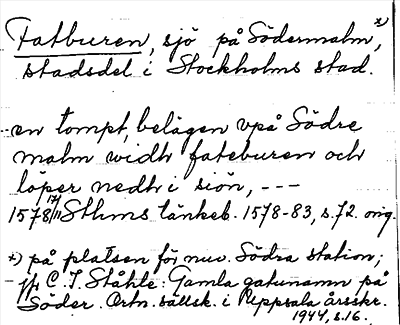 Fatburen, sjö på Södermalm, *)
stadsdel i Stockholms stad.
en tompt, belägen vpå Södre
malm widh fateburen och
löper nedh i siön, ---
1578 17/11 Sthms tänkeb. 1578-83, s. 72. orig.
*) på platsen för nuv. Södra station;
jfr C. I. Ståhle: Gamla gatunamn på
Söder. Ortn. sällsk. i Uppsala årsskr.
1944, s. 16.